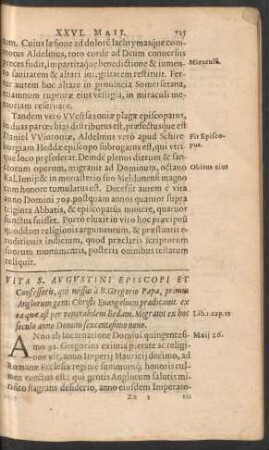 XXVI. MAII. 725
tum. Cuius læsione ad dolorē lachrymasque com-
motus Aldelmus, toto corde ad Deum conuersus
preces fudit, impartitaque benedictione & iumen-
to sanitatem & altari integritatem restituit. Fer-
tur autem hoc altare in prouincia Somersetana,
etiamnum rupturæ eius vestigia, in miraculi me-
moriam reseruare.
Miracula.
Tandem verò VVestsaxoniæ plagæ episcopatus,
in duas parœcias distributus est, præfectusque est
Daniel VVintoniæ, Aldelmus verò apud Schire-
burgiam Heddæ episcopo subrogatus est, qui vtri-
que loco præfederat. Deinde plenus dierum & san-
ctorum operum, migrauit ad Dominum, octauo
Kal. Iunij: & in monasterio suo Meldunensi magno
cum honore tumulatus est. Decessit autem è vita
anno Domini 709. postquam annos quatuor supra
triginta Abbatis, & episcopatus munere, quatuor
functus fuisset. Porrò eluxit in vita hoc præcipuè
quoddam religionis argumentum, & præstantis e-
ruditionis indicium, quod præclaris scriptorum
suorum monumentis, posteris omnibus testatum
reliquit.
Fit Episco-
pus.
Obitus eius
VITA S. AVGVSTINI EPISCOPI ET
Confessoris, qui missus à B. Gregorio Papa, primus
Anglorum genti Christi Euangelium prædicauit ex
ea quæ est per venerabilem Bedam. Migrauit ex hoc
seculo anno Domini sexcentesimo nono.
Lib. 1. cap. 23
ANno ab incarnatione Domini quingentesi-
mo 92. Gregorius eximia pietate ac religi-
one vir, anno Imperij Mauricij decimo, ad
Romanæ Ecclesiæ regimē summum, religionis cul-
men euectus est: qui gentis Anglorum salutis mi-
rifico flagrans desiderio, anno eiusdem Imperato-
Maij 26.
Zz 3
ris